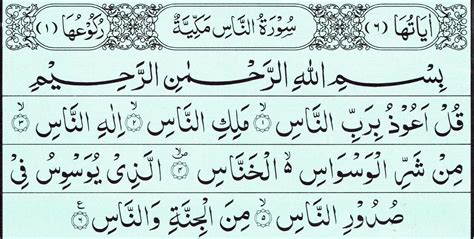 اٰيَاتُهَا (٦) سُوْرَةُ النَّاسِ مَكِّيَّةٌ رُكُوْعُهَا (١)
بِسْمِ اللّٰهِ الرَّحْمٰنِ الرَّحِيْمِ
قُلْ اَعُوْذُ بِرَبِّ النَّاسِ ۙ﴿١﴾ مَلِكِ النَّاسِ ۙ﴿٢﴾ اِلٰهِ النَّاسِ ۙ﴿٣﴾
مِنْ شَرِّ الْوَسْوَاسِ ۙ۬ الْخَنَّاسِ ۪ۙ﴿٤﴾ الَّذِيْ يُوَسْوِسُ فِيْ
صُدُوْرِ النَّاسِ ۙ﴿٥﴾ مِنَ الْجِنَّةِ وَالنَّاسِ ﴿٦﴾ ع